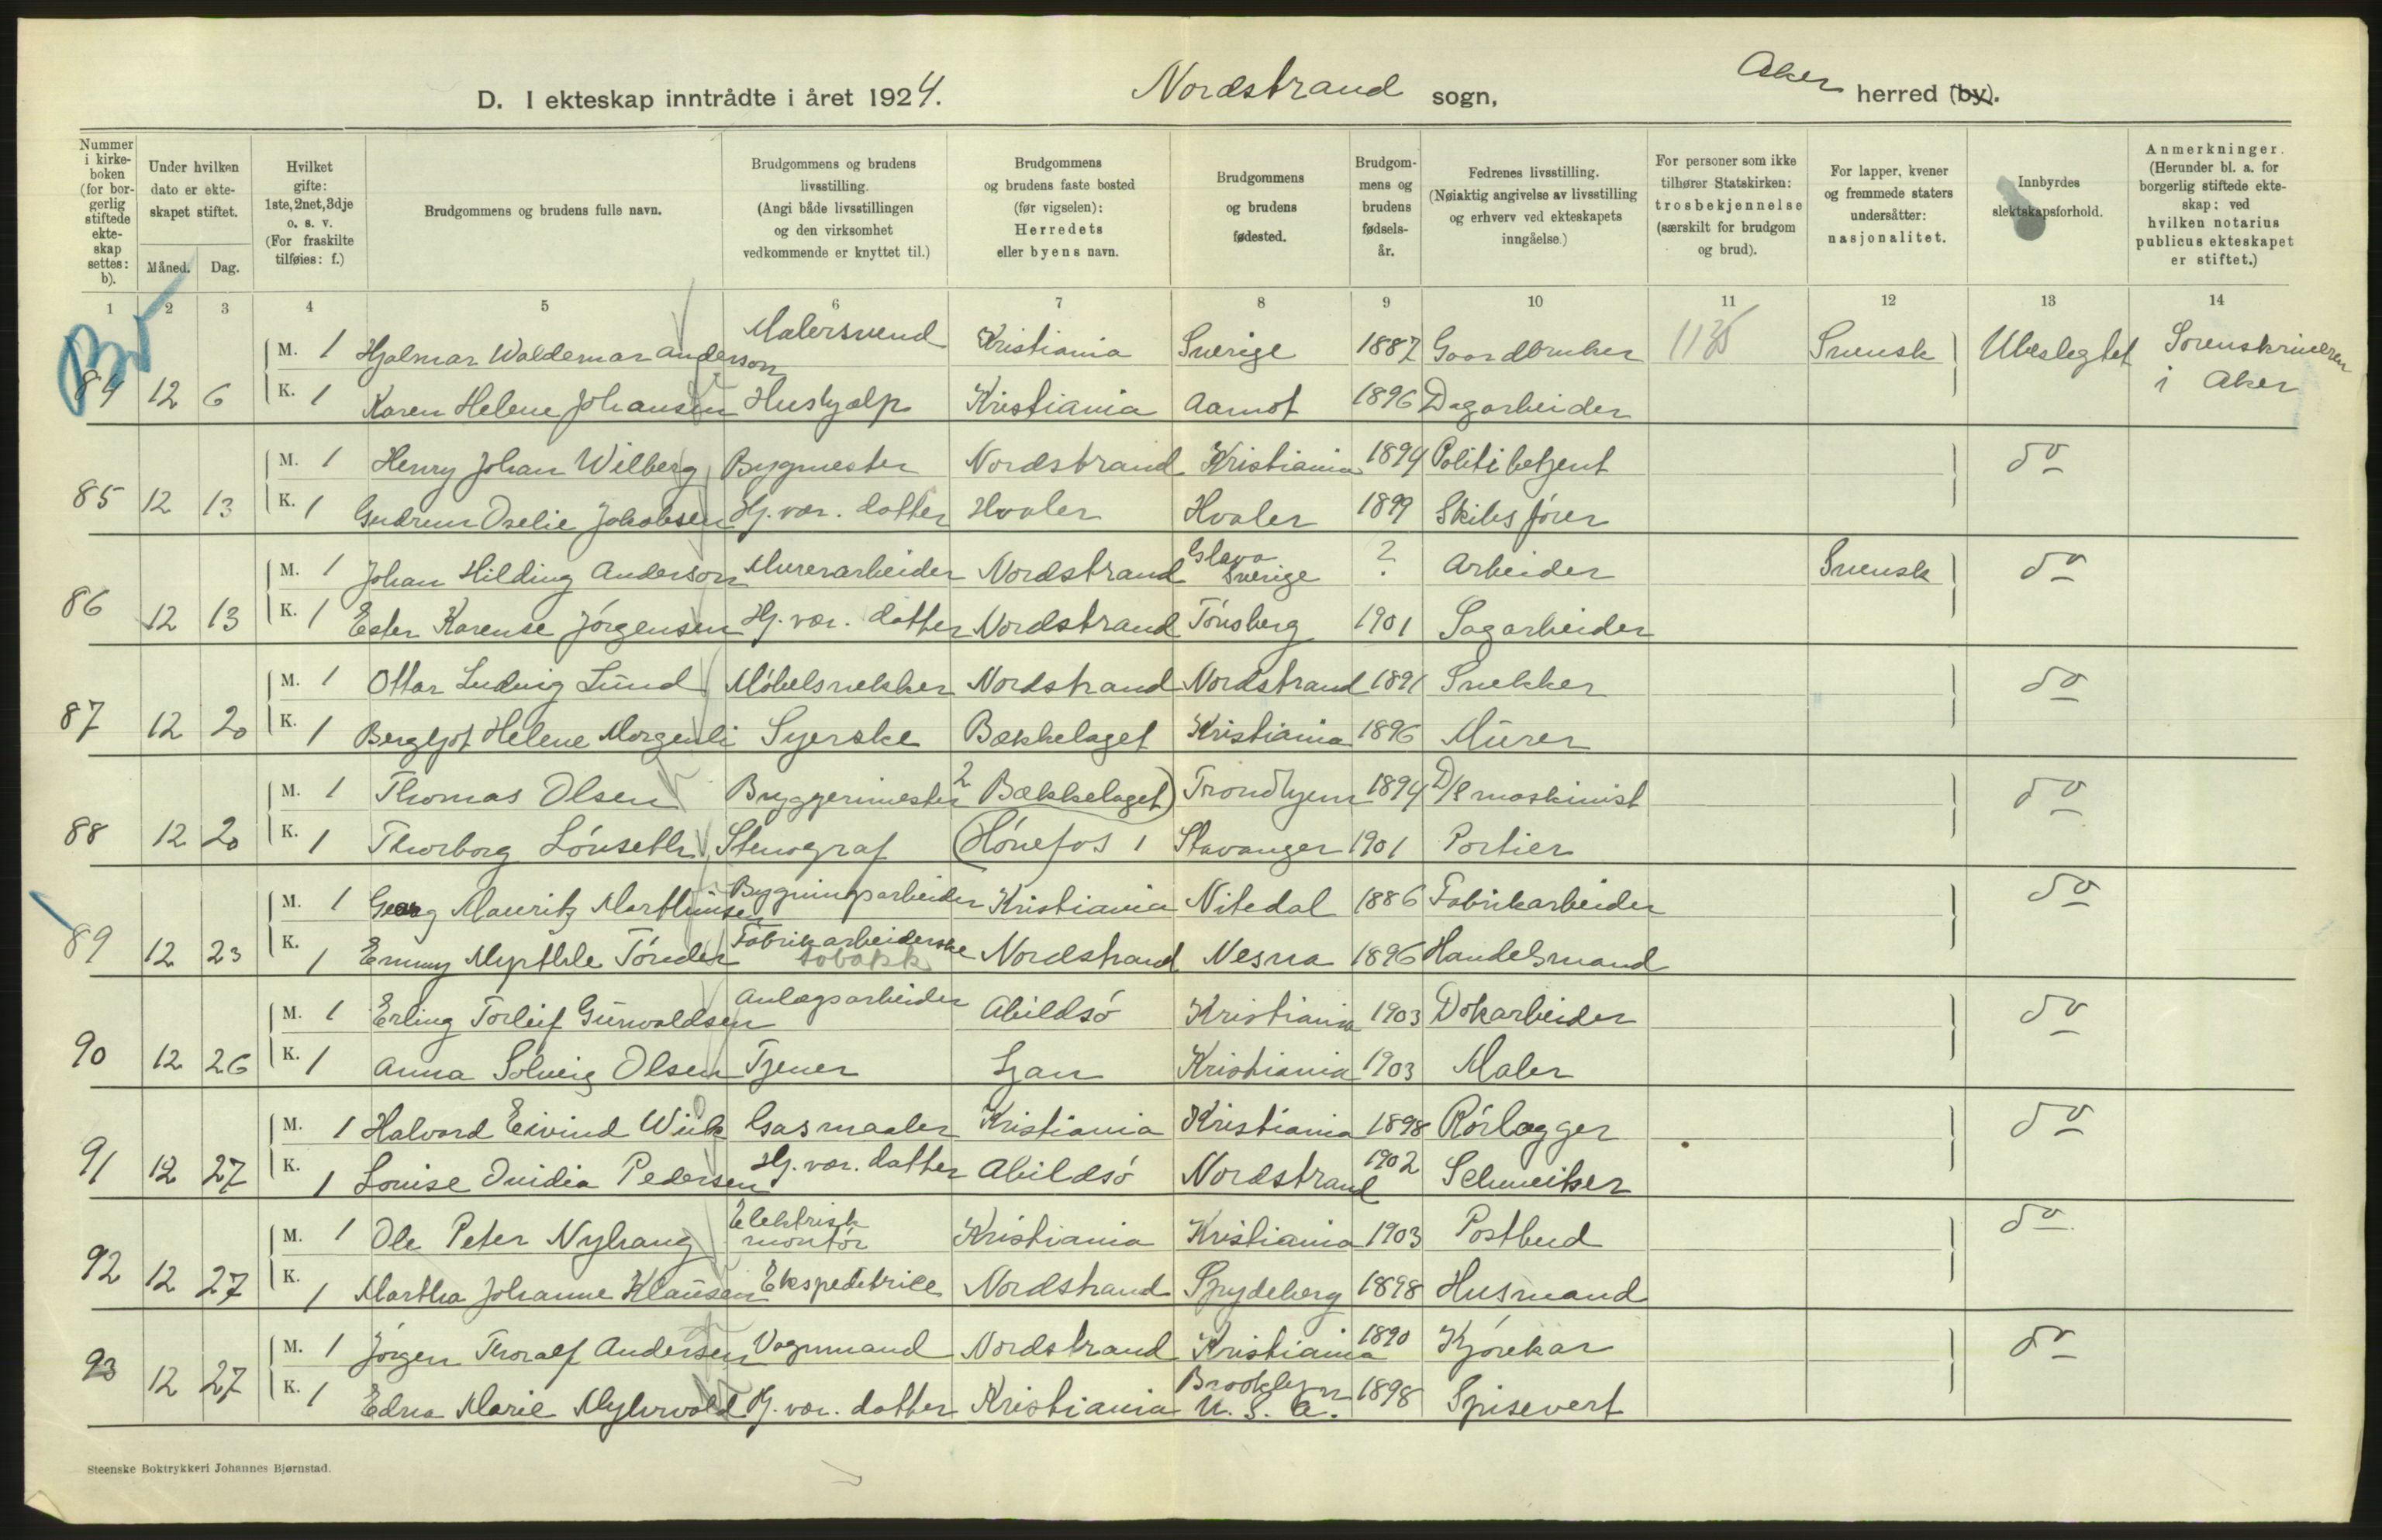 D. I ekteskap inntrådte i året 1924. Nordstrand sogn, Aker herred (by).
Nummer i kirke-boken (for bor-gerlig stiftede ekte-skap settes: b).
Under hvilken dato er ekte-skapet stiftet.
Måned. Dag.
Hvilket gifte: 1ste, 2net, 3dje o. s. v. (For fraskilte tilføies: f.)
Brudgommens og brudens fulle navn.
Brudgommens og brudens livsstilling. (Angi både livsstillingen og den virksomhet vedkommende er knyttet til.)
Brudgommens og brudens faste bosted (før vigselen): Herredets eller byens navn.
Brudgommens og brudens fødested.
Brudgom-mens og brudens fødsels-år.
Fedrenes livsstilling. (Nøiaktig angivelse av livsstilling og erhverv ved ekteskapets inngåelse.)
For personer som ikke tilhører Statskirken: trosbekjennelse (særskilt for brudgom og brud).
For lapper, kvener og fremmede staters undersåtter: nasjonalitet.
Innbyrdes slektskapsforhold.
Anmerkninger. (Herunder bl. a. for borgerlig stiftede ekte-skap: ved hvilken notarius publicus ekteskapet er stiftet.)
1 2 3 4 5 6 7 8 9 10 11 12 13 14
M. 1 Hjalmar Waldemar Anderson Malersvend Kristiania Sverige 1887 Gaardbruker Svensk Ubeslegtet Sorenskriveren
84 12 6 K. 1 Karen Helene Johansen Hushjælp Kristiania Aamot 1896 Dagarbeider i Aker
M. 1 Henry Johan Wilberg Bygmester Nordstrand Kristiania 1894 Politibetjent do
85 12 13 K. 1 Gudrun Ovelie Jakobsen Hj. vær. datter Hvaler Hvaler 1899 Skibsfører
M. 1 Johan Hilding Anderson Murerarbeider Nordstrand Glava Sverige ? Arbeider Svensk do
86 12 13 K. 1 Ester Karense Jörgensen Hj. vær. datter Nordstrand Tönsberg 1901 Sagarbeider
M. 1 Ottar Ludvig Lund Möbelsnekker Nordstrand Nordstrand 1891 Snekker do
87 12 20 K. 1 Bergljot Helene Morgenli Syerske Bækkelaget Kristiania 1896 Murer
M. 1 Thomas Olsen Bryggerimester 2 Bækkelaget) Trondhjem 1894 D/S maskinist do
88 12 20 K. 1 Thorborg Lönseth Stenograf (Hönefos 1 Stavanger 1901 Portier
M. 1 Georg Mauritz Marthinsen Bygningsarbeider Kristiania Nitedal 1886 Fabrikarbeider do
89 12 23 K. 1 Emmy Myrthle Tönder Fabrikarbeiderske tobakk Nordstrand Nesna 1896 Handelsmand
M. 1 Erling Torleif Gunvaldsen Anlægsarbeider Abildsö Kristiania 1903 Dokarbeider do
90 12 26 K. 1 Anna Solveig Olsen Tjener Ljan Kristiania 1903 Maler
M. 1 Halvard Eivind Wiik Gasmaaler Kristiania Kristiania 1898 Rörlægger do
91 12 27 K. 1 Louise Ovidia Pedersen Hj. vær. datter Abildsö Nordstrand 1902 Schweitser
M. 1 Ole Peter Nyhaug Elektrisk montör Kristiania Kristiania 1903 Postbud do
92 12 27 K. 1 Martha Johanne Klausen Ekspeditrice Nordstrand Spydeberg 1898 Husmand
M. 1 Jörgen Thoralf Andersen Vognmand Nordstrand Kristiania 1890 Kjörekar do
93 12 27 K. 1 Edna Marie Myhrvold Hj. vær. datter Kristiania Brooklyn U. S. A. 1898 Spisevert
Steenske Boktrykkeri Johannes Bjørnstad.